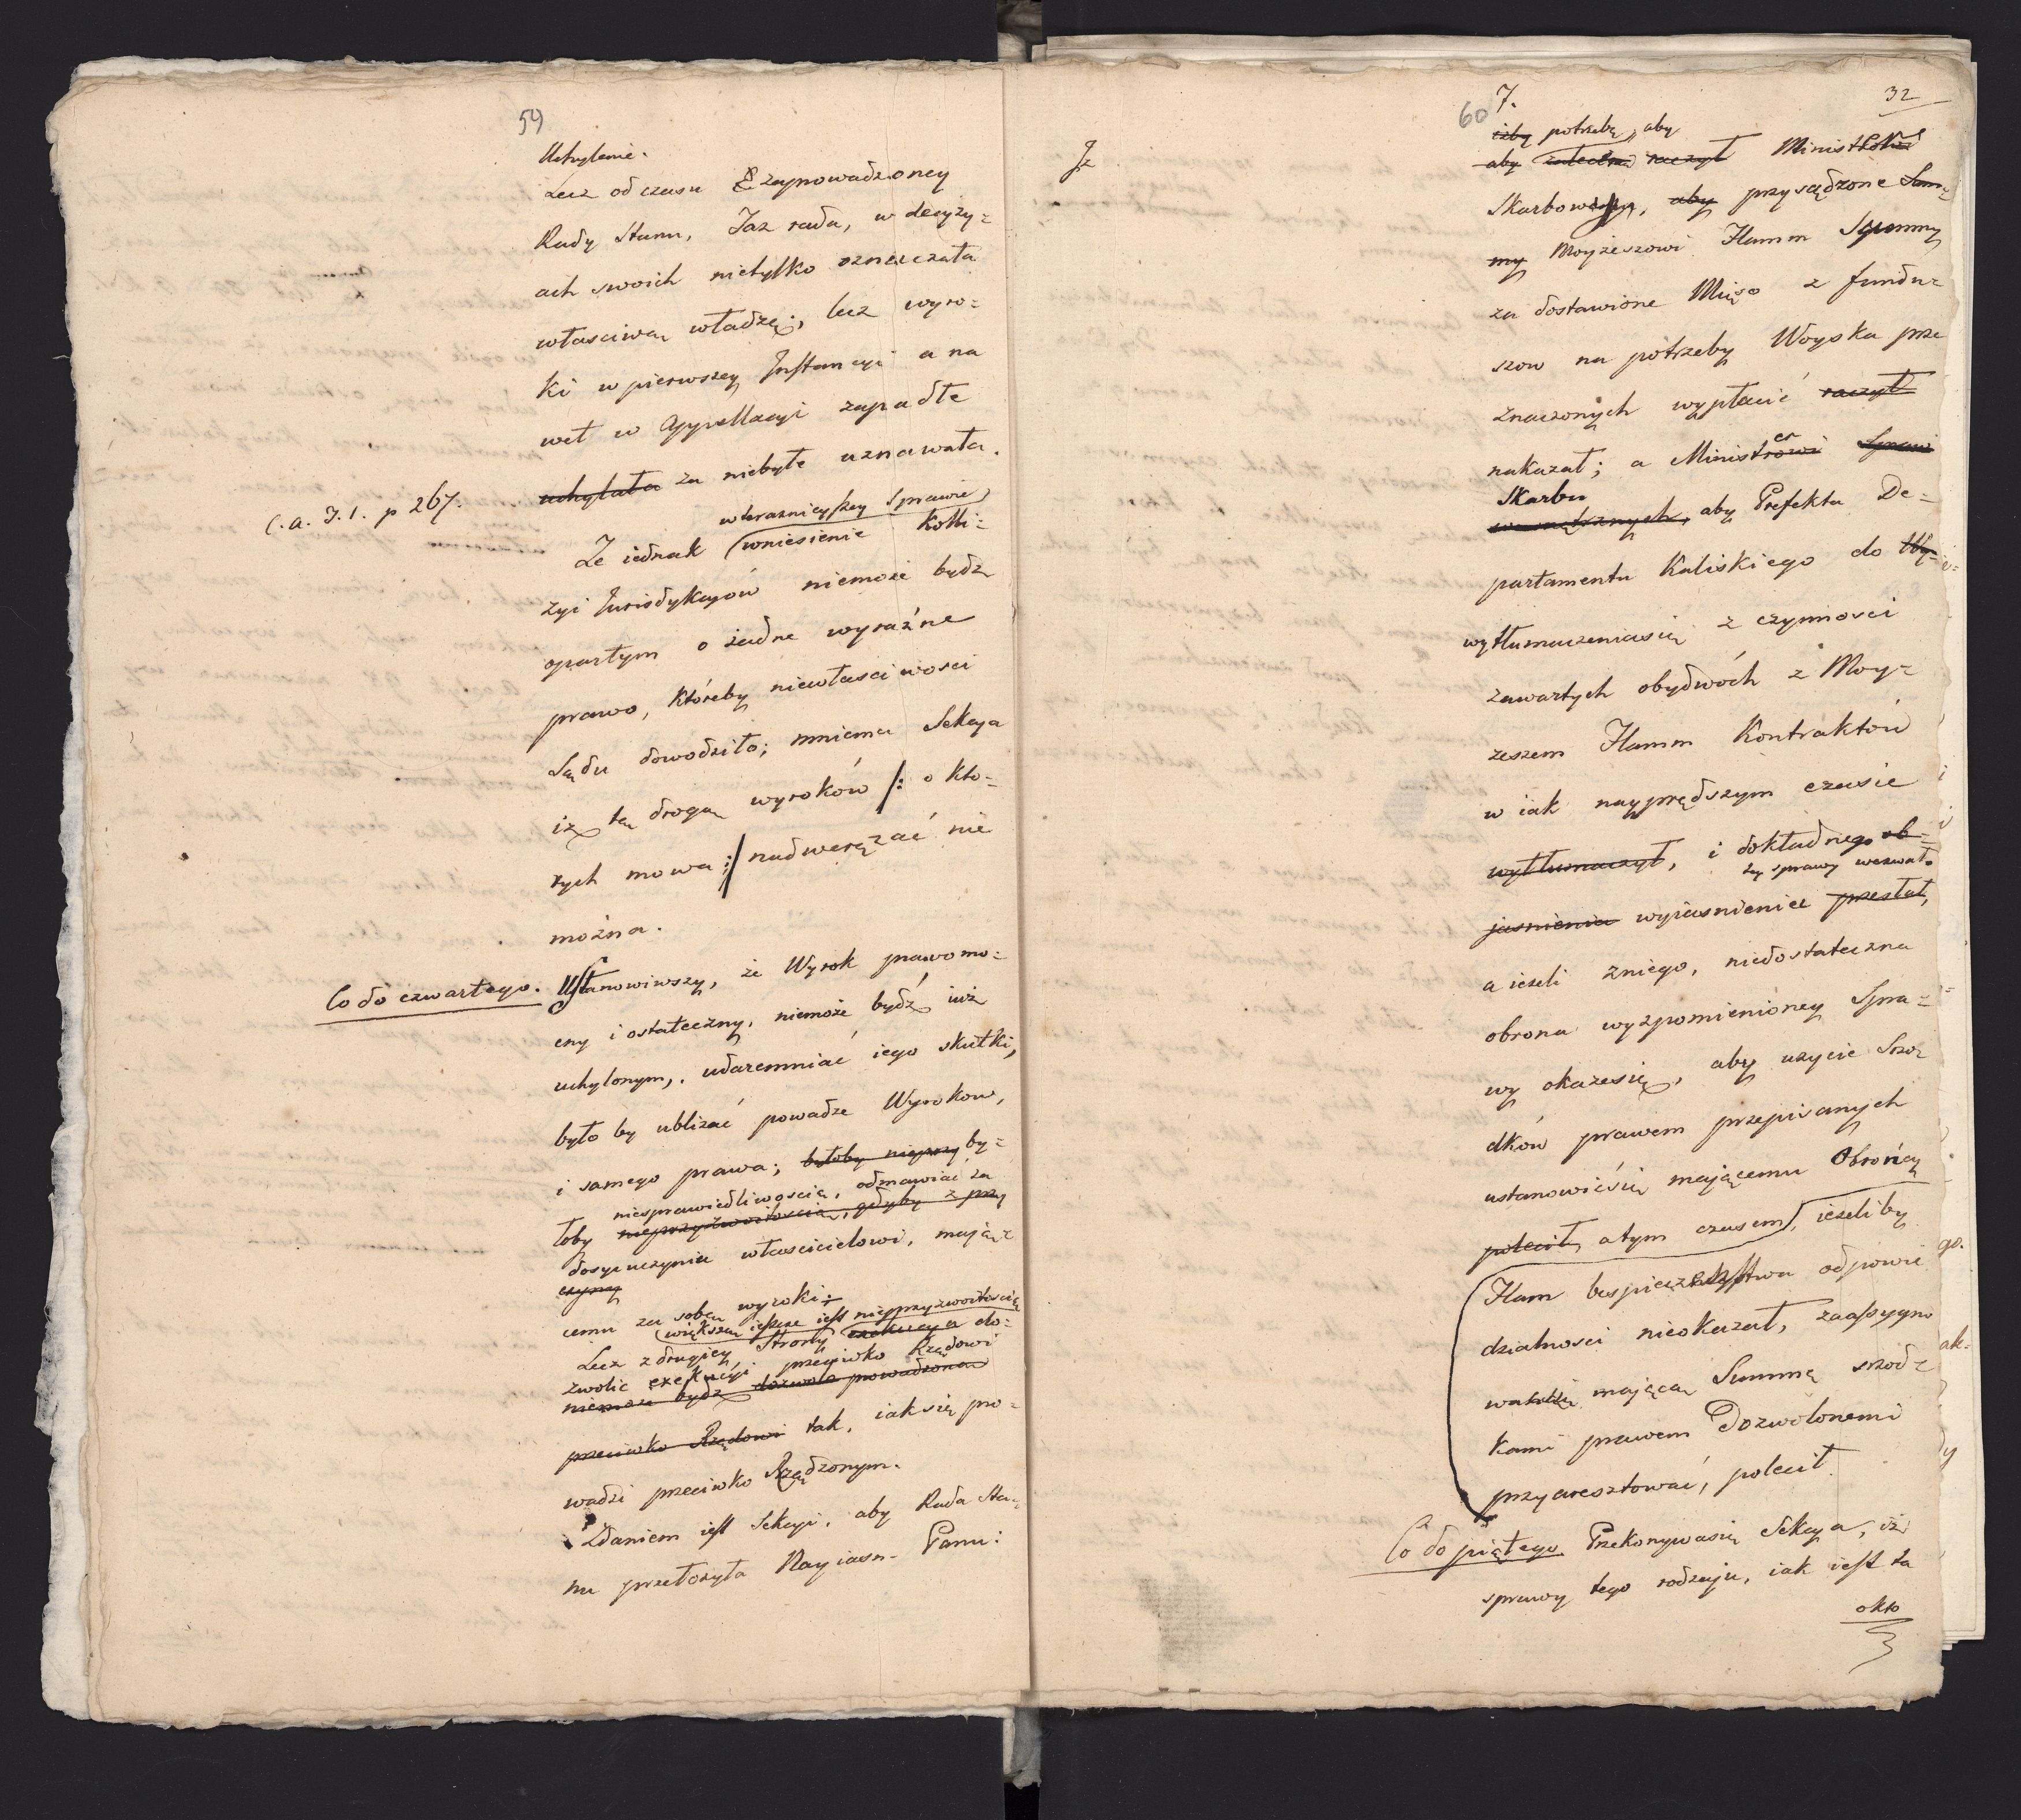 59
Uchylenie.
Lecz od czasu zaprowadzoney
Rady Stanu, Taz rada, w decyzy=
ach swoich nietylko oznaczała
własciwą władzę, lecz wyro=
ki w pierwszey Instancyi a na
wet w Appellacyi zapadłe
uchylała za niebyłe uznawała.
C. a. J. 1. p 267.
w teraznieyszey Sprawie
Ze iednak wniesienie Kolli=
zyi Jurisdykcyów niemoże bydz
opartym o żadne wyraźne
prawo, któreby niewłasciwosci
Sądu dowodziło; mniema Sekcya
iż tą drogą wyroków /: o Któ=
rych mowa :/ nadwerężać nie
można.
Co do czwartego. Ustanowiwszy, że Wyrok prawomo=
cny i ostateczny, niemoże bydź iuż
uchylonym, udaremniać iego skutki,
było by ubliżać powadze Wyroków,
i samego prawa; byłoby nieprzy by=
niesprawiedliwoscią, odmawiać za
łoby nieprzyzwoitoscią, gdyby z przy
dosyc uczynia włascicielowi, mając=
czyny
cemu za sobą wyroki:
większą ieszcze iest nieprzyzwoitoscią
Lecz z drugiey Strony exekucya do=
zwolic exekucyi przeciwko Rządowi
niemoże bydz dozwola powadzona
przeciwko Rządowi tak, iak się pro=
wadzi przeciwko Rządzonym.
Zdaniem iest Sekcyi, aby Rada Sta=
nu przełożyła Nayiasn. Panu:
60
7.
32
Jz
iżby potrzebę, aby
aby zalecenie raczył Minist
Skarbowy, aby przysądzone Sum=
my Moyżeszowi Hamm Summy
za dostawione Mięso z fundu=
szow na potrzeby Woyska prze
znaczonych wypłacić raczył
nakazał; a Ministrowi Spraw
er
Skarbu
wewnętrznych, aby Prefekta De=
partamentu Kaliskiego do Wy=
wytłumaczeniasię z czynnosci
zawartych obydwóch z Moy=
żeszem Hamm Kontraktów
w iak nayprędszym czasie
wytłumaczył, i dokładnego ob=
tey sprawy wezwał.
jasnienia wyiasnienie przesłał,
a ieżeli zniego, niedostateczna
obrona wyzpomnienioney Spra=
wy okażesię, aby użycie Srzo=
dków prawem przepisanych
ustanowićsię mającemu Obrońcy
polecił, a tym czasem, ieżeliby
Ham bespieczeństwa odpowie
dzialnosci nieokazał, zaassygno
wać mającą Summę srzod=
kami prawem Dozwolonemi
przyaresztować, polecił.
Co do piątego Przekonywasię Sekcya, iż
sprawy tego rodzaju, iak iest ta
okto